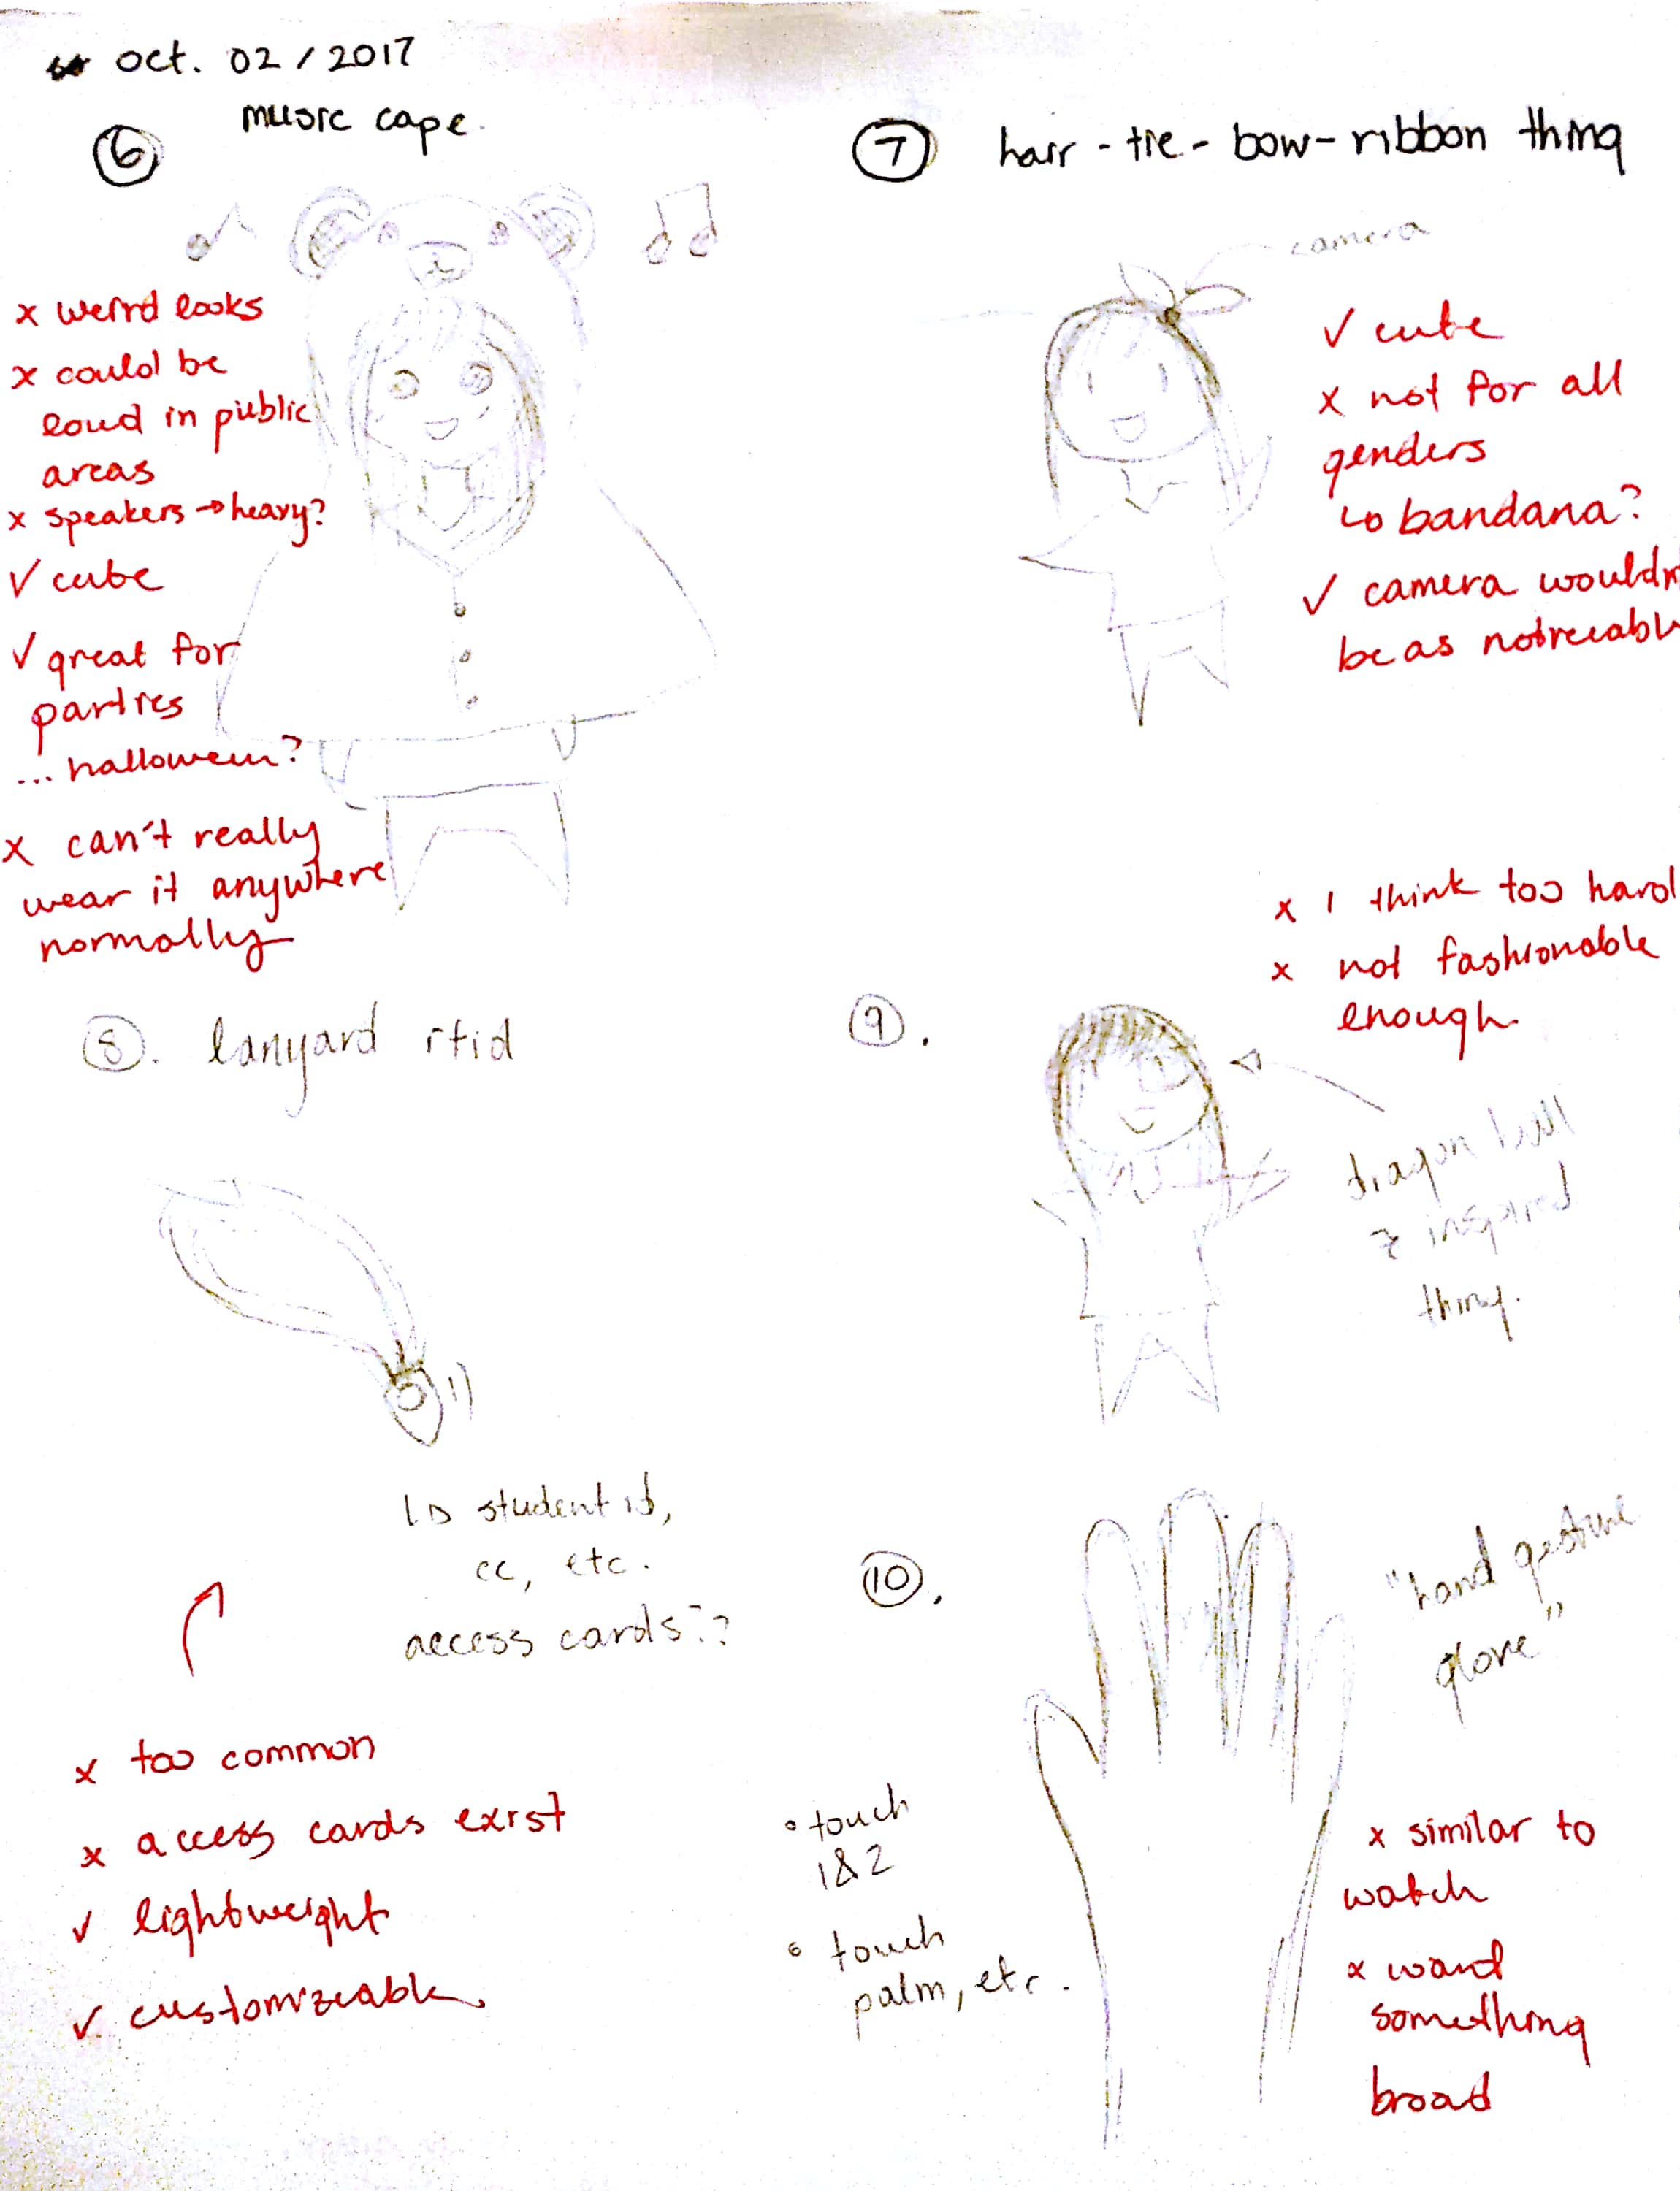 oct. 02 / 2017
6
music cape.
x weird looks
x could be
loud in public
areas
x speakers → heavy?
✓ cute
✓ great for
parties
... halloween?
x can't really
wear it anywhere
normally
7
hair - tie - bow - ribbon thing
camera
✓ cute
x not for all
genders
↳ bandana?
✓ camera wouldn
be as noticeabl
8. lanyard rfid
↳ student id,
cc, etc.
access cards??
x too common
x access cards exist
✓ lightweight
✓ customizeable
9.
x I think too hard
x not fashionable
enough
dragon ball
z inspired
thing.
10.
"hand gesture
glove"
• touch
1&2
• touch
palm, etc.
x similar to
watch
x want
something
broad